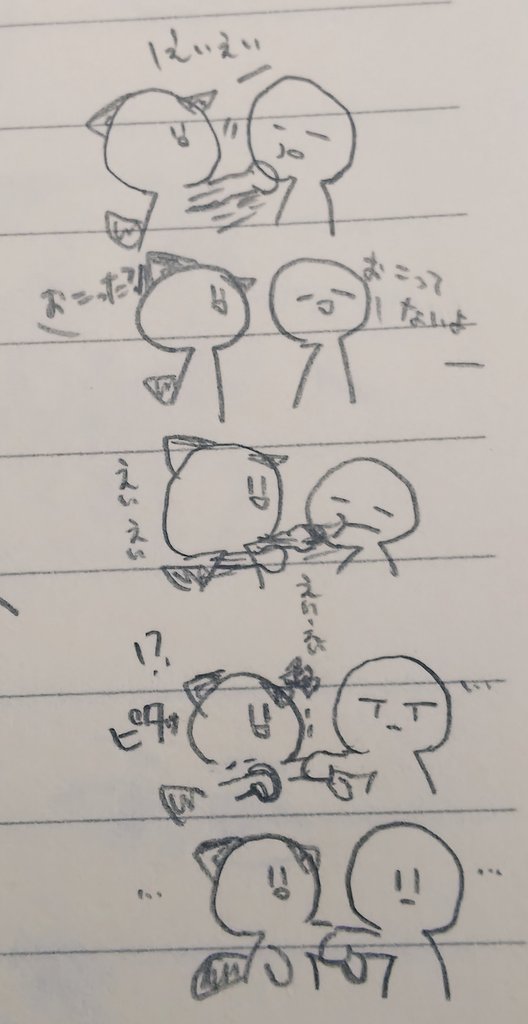 えいえい
おこった?
おこって
ないよ
えいえい
えいえい
!?
ピタッ
…
…
…